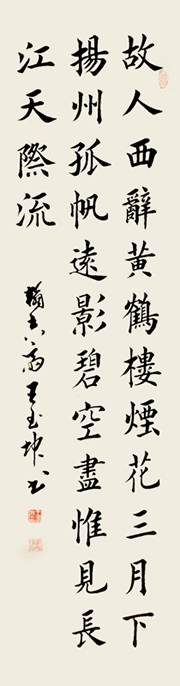 故人西辭黃鶴樓煙花三月下
揚州孤帆遠影碧空盡惟見長
江天際流